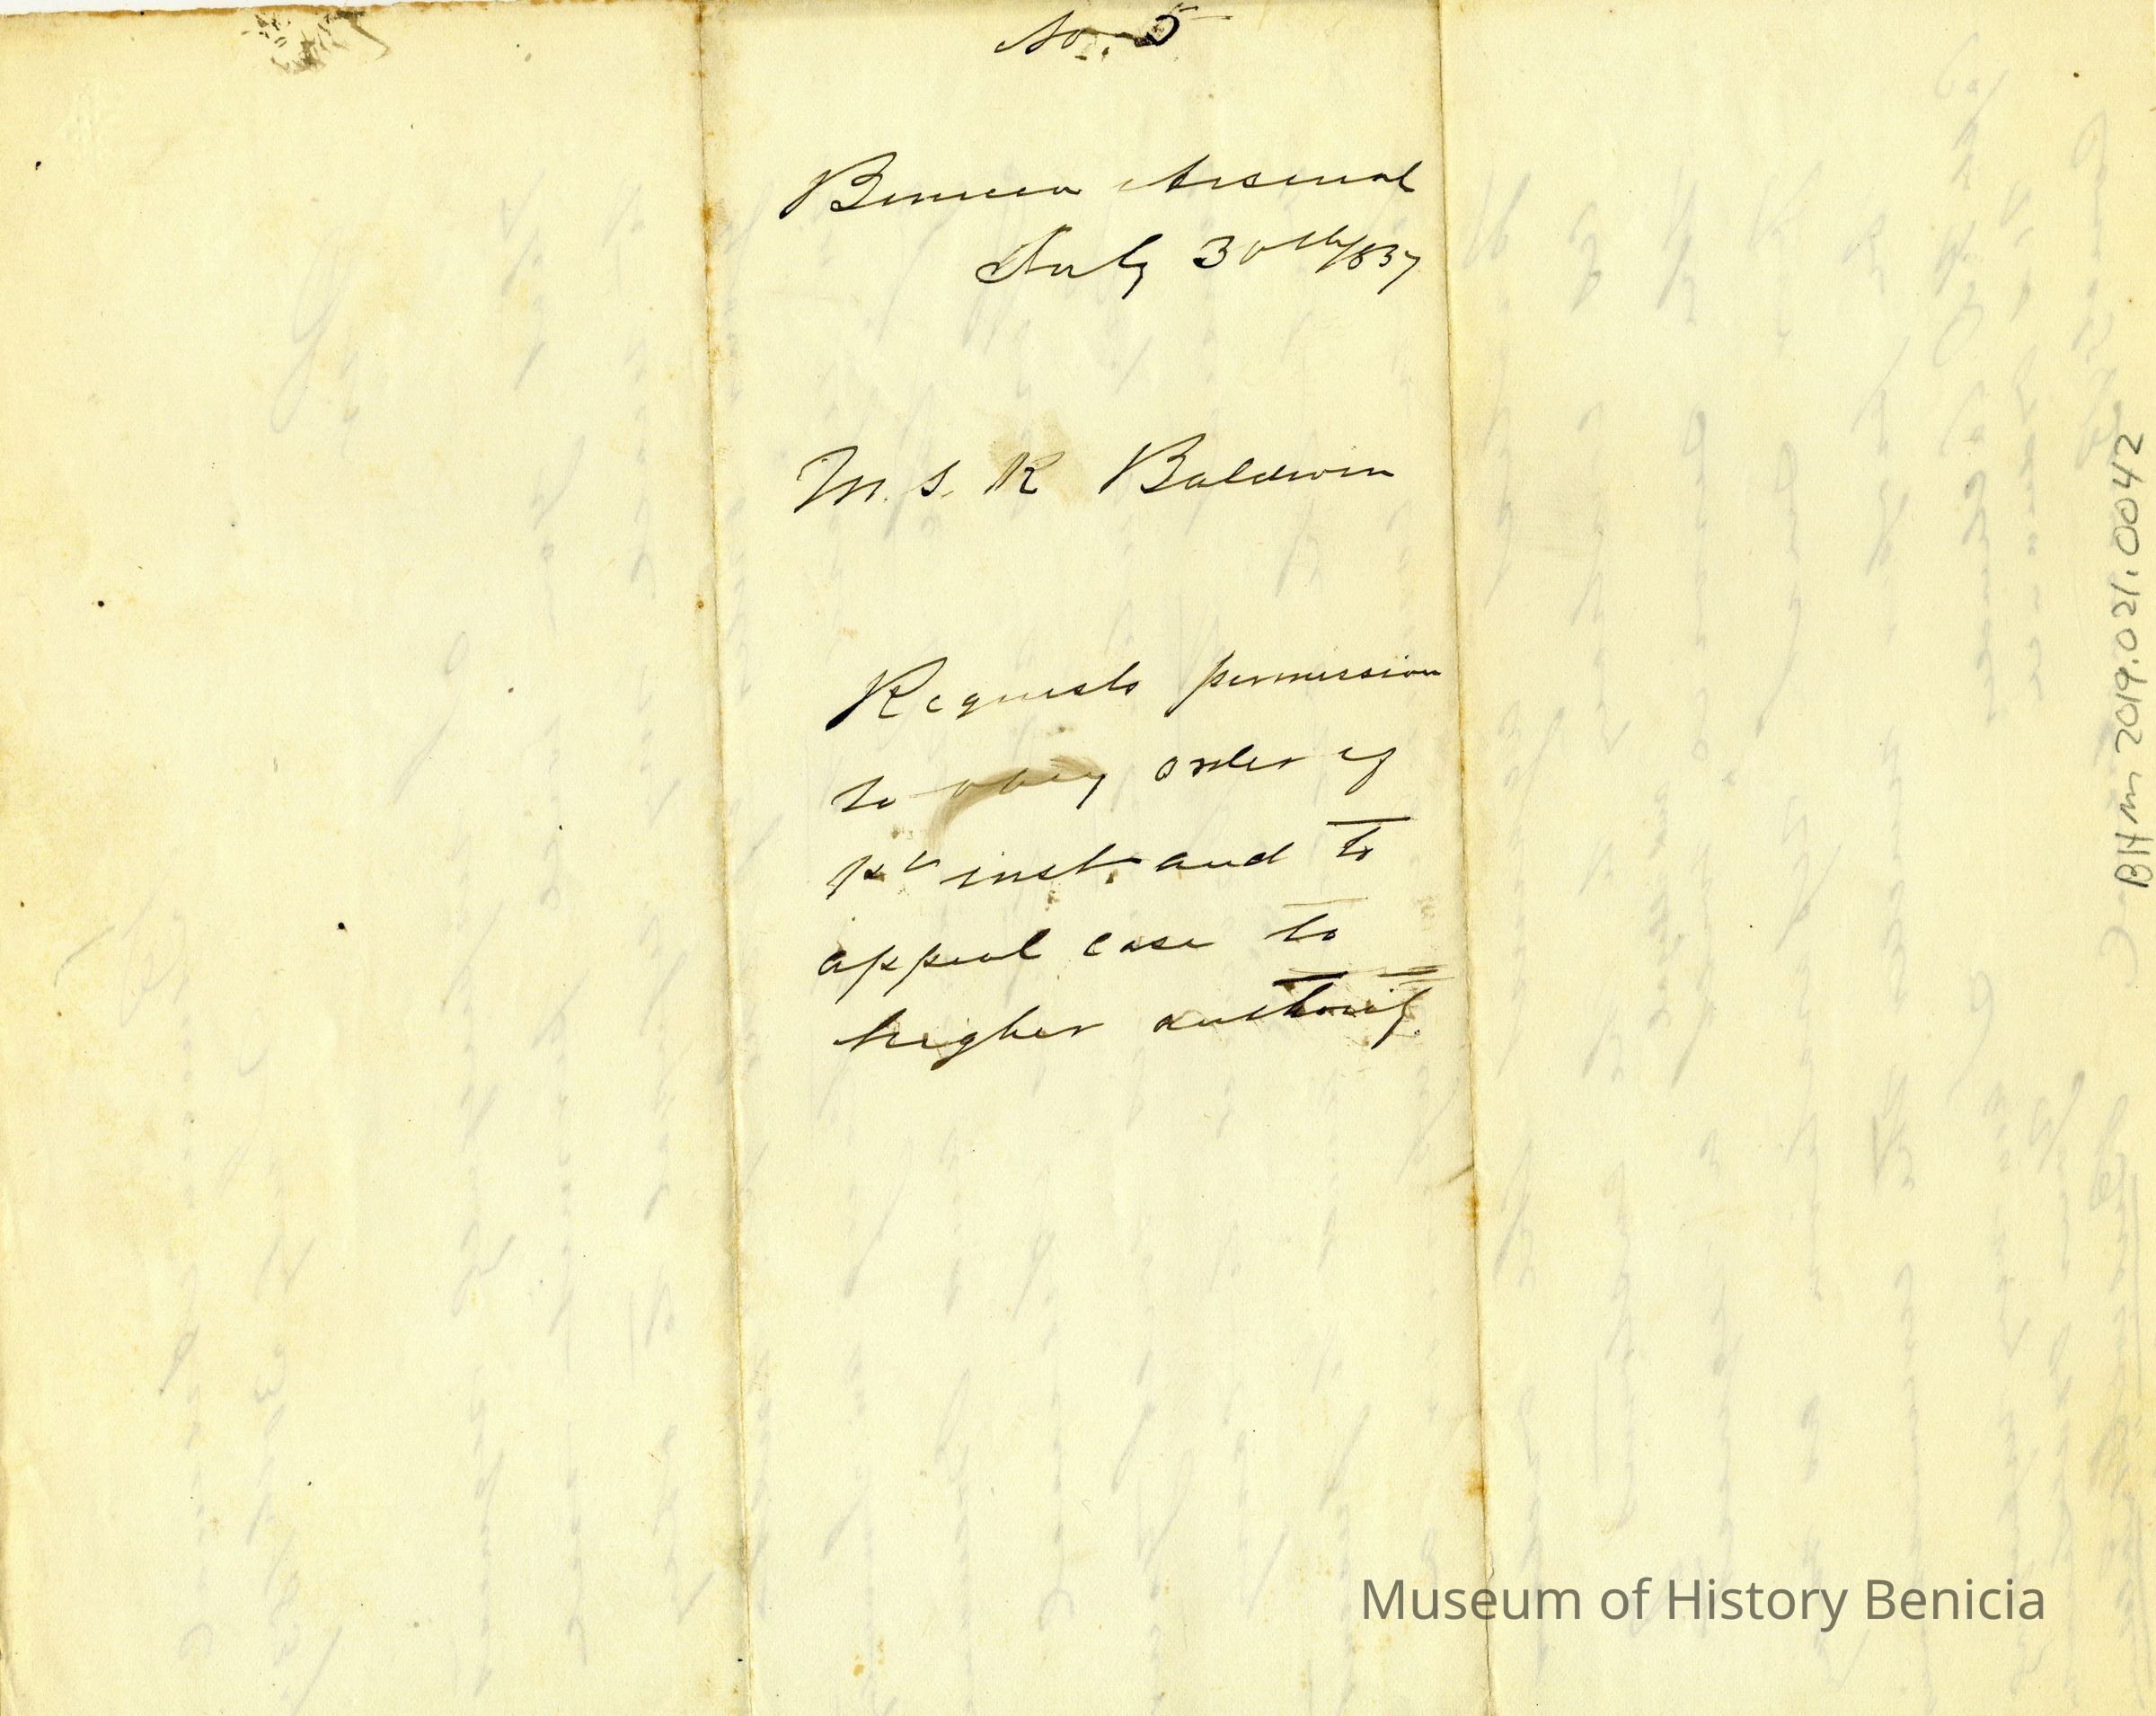 No. 5
Benicia Arsenal
July 30th/857
M. S. K Baldwin
Requests permission
to obey order of
inst. and to
appeal case to
higher authority.
BHm 2019.021.0042
Museum of History Benicia